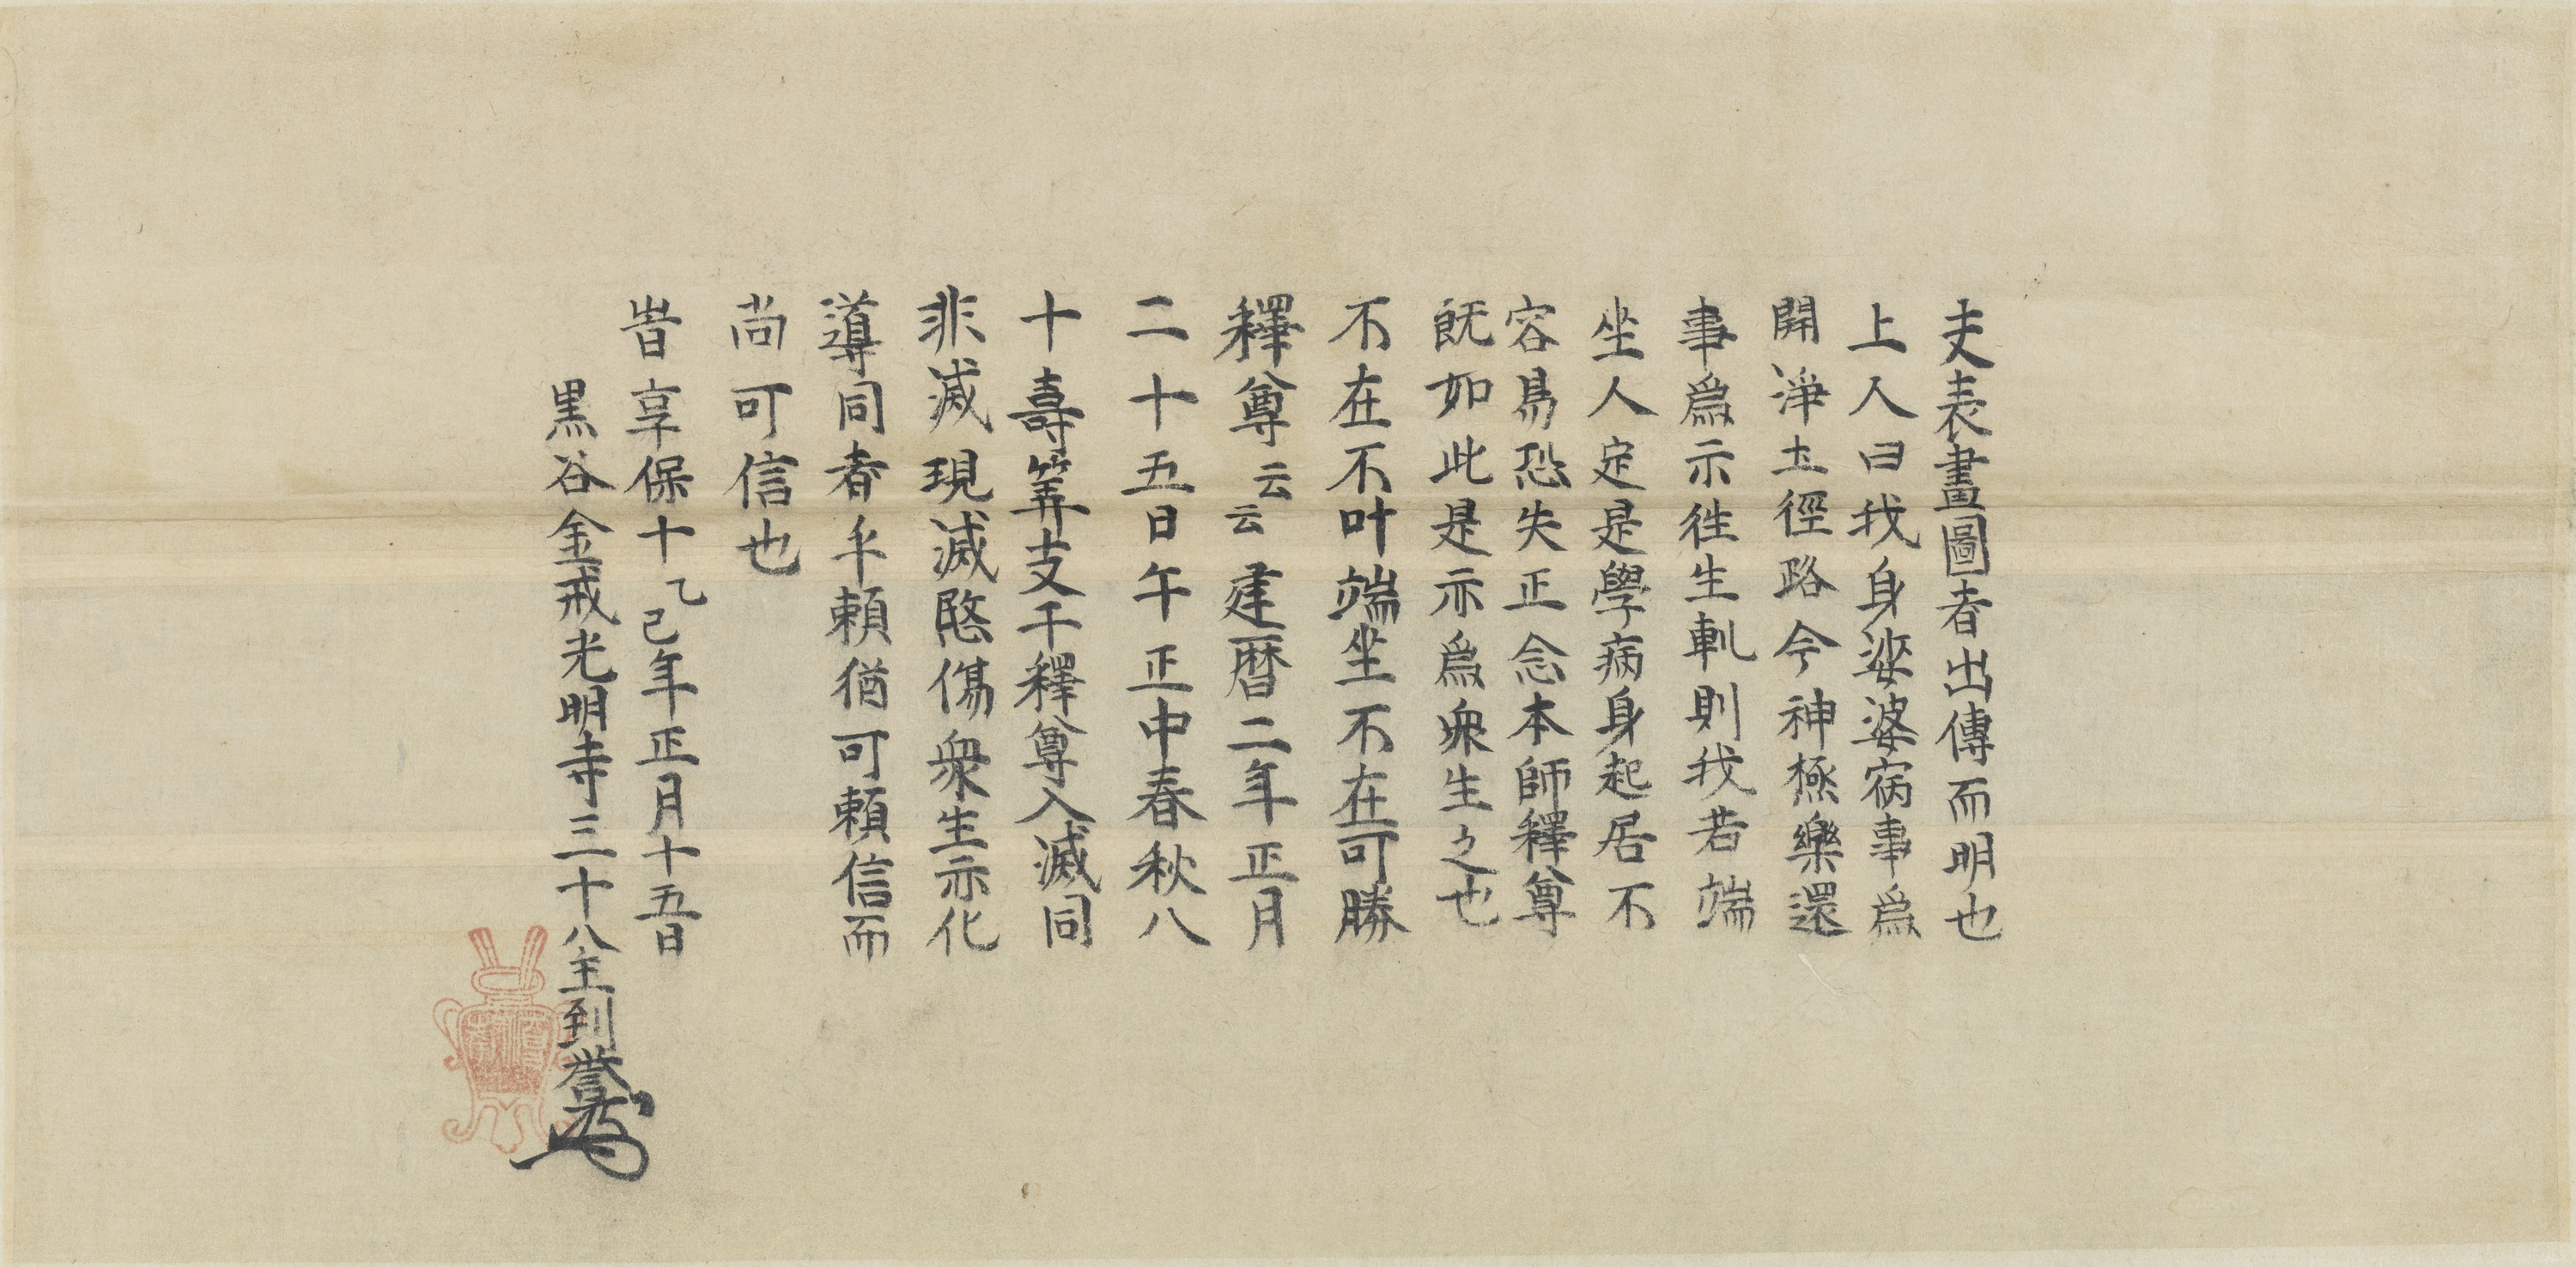 夫表畫圖者出傳而明也
上人曰我身娑婆病事爲
開淨土徑路令神極樂還
事爲示徃生軌則我若端
坐人定是學病身起居不
容易恐失正念本師釋尊
既如此是示爲衆生之也
不在不叶端坐不在可勝
釋尊云云建暦二年正月
二十五日午正中春秋八
十壽筭支干釋尊入滅同
非滅現滅愍傷衆生示化
導同者乎頼猶可頼信而
尚可信也
旹享保十乙巳年正月十五日
黒谷金戒光明寺三十八主到譽